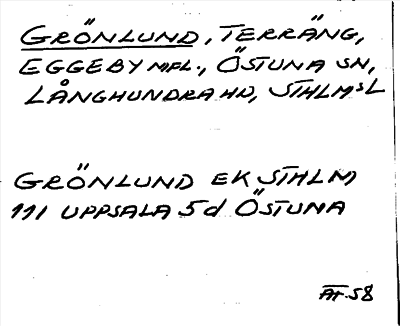 GRÖNLUND, TERRÄNG,
EGGEBY MFL., ÖSTUNA SN,
LÅNGHUNDRA HD, STHLMS L
GRÖNLUND EK STHLM
111 UPPSALA 5d ÖSTUNA
ÄT. 58